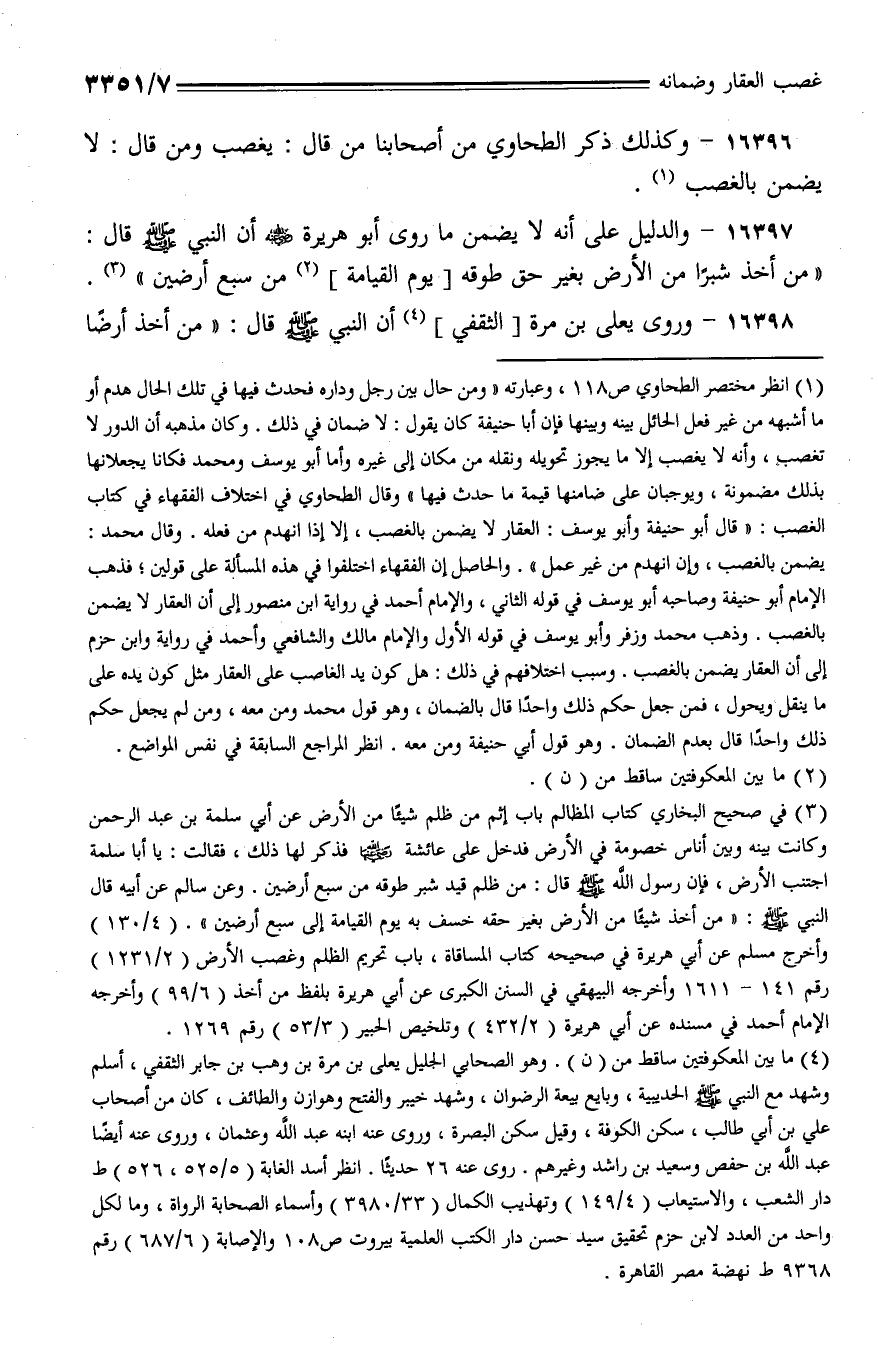 غصب العقار وضمانه ٣٣٥١/٧
١٦٣٩٦ - وكذلك ذكر الطحاوي من أصحابنا من قال : يغصب ومن قال : لا
يضمن بالغصب (١) .
١٦٣٩٧ - والدليل على أنه لا يضمن ما روى أبو هريرة ﵁ أن النبي ﷺ قال :
« من أخذ شبرًا من الأرض بغير حق طوقه [ يوم القيامة ] (٢) من سبع أرضين » (٣) .
١٦٣٩٨ - وروى يعلى بن مرة [ الثقفي ] (٤) أن النبي ﷺ قال : « من أخذ أرضًا
(١) انظر مختصر الطحاوي ص١١٨ ، وعبارته « ومن حال بين رجل وداره فحدث فيها في تلك الحال هدم أو
ما أشبهه من غير فعل الحائل بينه وبينها فإن أبا حنيفة كان يقول : لا ضمان في ذلك . وكان مذهبه أن الدور لا
تغصب ، وأنه لا يغصب إلا ما يجوز تحويله ونقله من مكان إلى غيره وأما أبو يوسف ومحمد فكانا يجعلانها
بذلك مضمونة ، ويوجبان على ضامنها قيمة ما حدث فيها » وقال الطحاوي في اختلاف الفقهاء في كتاب
الغصب : « قال أبو حنيفة وأبو يوسف : العقار لا يضمن بالغصب ، إلا إذا انهدم من فعله . وقال محمد :
يضمن بالغصب ، وإن انهدم من غير عمل » . والحاصل إن الفقهاء اختلفوا في هذه المسألة على قولين ؛ فذهب
الإمام أبو حنيفة وصاحبه أبو يوسف في قوله الثاني ، والإمام أحمد في رواية ابن منصور إلى أن العقار لا يضمن
بالغصب . وذهب محمد وزفر وأبو يوسف في قوله الأول والإمام مالك والشافعي وأحمد في رواية وابن حزم
إلى أن العقار يضمن بالغصب . وسبب اختلافهم في ذلك : هل كون يد الغاصب على العقار مثل كون يده على
ما ينقل ويحول ، فمن جعل حكم ذلك واحدًا قال بالضمان ، وهو قول محمد ومن معه ، ومن لم يجعل حكم
ذلك واحدًا قال بعدم الضمان . وهو قول أبي حنيفة ومن معه . انظر المراجع السابقة في نفس المواضع .
(٢) ما بين المعكوفتين ساقط من ( ن ) .
(٣) في صحيح البخاري كتاب المظالم باب إثم من ظلم شيئًا من الأرض عن أبي سلمة بن عبد الرحمن
وكانت بينه وبين أناس خصومة في الأرض فدخل على عائشة ﵂ فذكر لها ذلك ، فقالت : يا أبا سلمة
اجتنب الأرض ، فإن رسول اللَّه ﷺ قال : من ظلم قيد شبر طوقه من سبع أرضين . وعن سالم عن أبيه قال
النبي ﷺ : « من أخذ شيئًا من الأرض بغير حقه خسف به يوم القيامة إلى سبع أرضين » . ( ١٣٠/٤ )
وأخرج مسلم عن أبي هريرة في صحيحه كتاب المساقاة ، باب تحريم الظلم وغصب الأرض ( ١٢٣١/٢ )
رقم ١٤١ - ١٦١١ وأخرجه البيهقي في السنن الكبرى عن أبي هريرة بلفظ من أخذ ( ٩٩/٦ ) وأخرجه
الإمام أحمد في مسنده عن أبي هريرة ( ٤٣٢/٢ ) وتلخيص الحبير ( ٥٣/٣ ) رقم ١٢٦٩ .
(٤) ما بين المعكوفتين ساقط من ( ن ) . وهو الصحابي الجليل يعلى بن مرة بن وهب بن جابر الثقفي ، أسلم
وشهد مع النبي ﷺ الحديبية ، وبايع بيعة الرضوان ، وشهد خيبر والفتح وهوازن والطائف ، كان من أصحاب
علي بن أبي طالب ، سكن الكوفة ، وقيل سكن البصرة ، وروى عنه ابنه عبد اللَّه وعثمان ، وروى عنه أيضًا
عبد اللَّه بن حفص وسعيد بن راشد وغيرهم . روى عنه ٢٦ حديثًا . انظر أسد الغابة ( ٥٢٥/٥ ، ٥٢٦ ) ط
دار الشعب ، والاستيعاب ( ١٤٩/٤ ) وتهذيب الكمال ( ٣٩٨٠/٣٣ ) وأسماء الصحابة الرواة ، وما لكل
واحد من العدد لابن حزم تحقيق سيد حسن دار الكتب العلمية بيروت ص١٠٨ والإصابة ( ٦٨٧/٦ ) رقم
٩٣٦٨ ط نهضة مصر القاهرة .